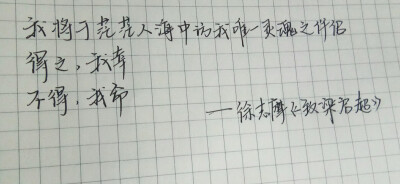 我将于茫茫人海中访我唯一灵魂之伴侣
得之，我幸
不得，我命
——徐志摩《致梁启超》